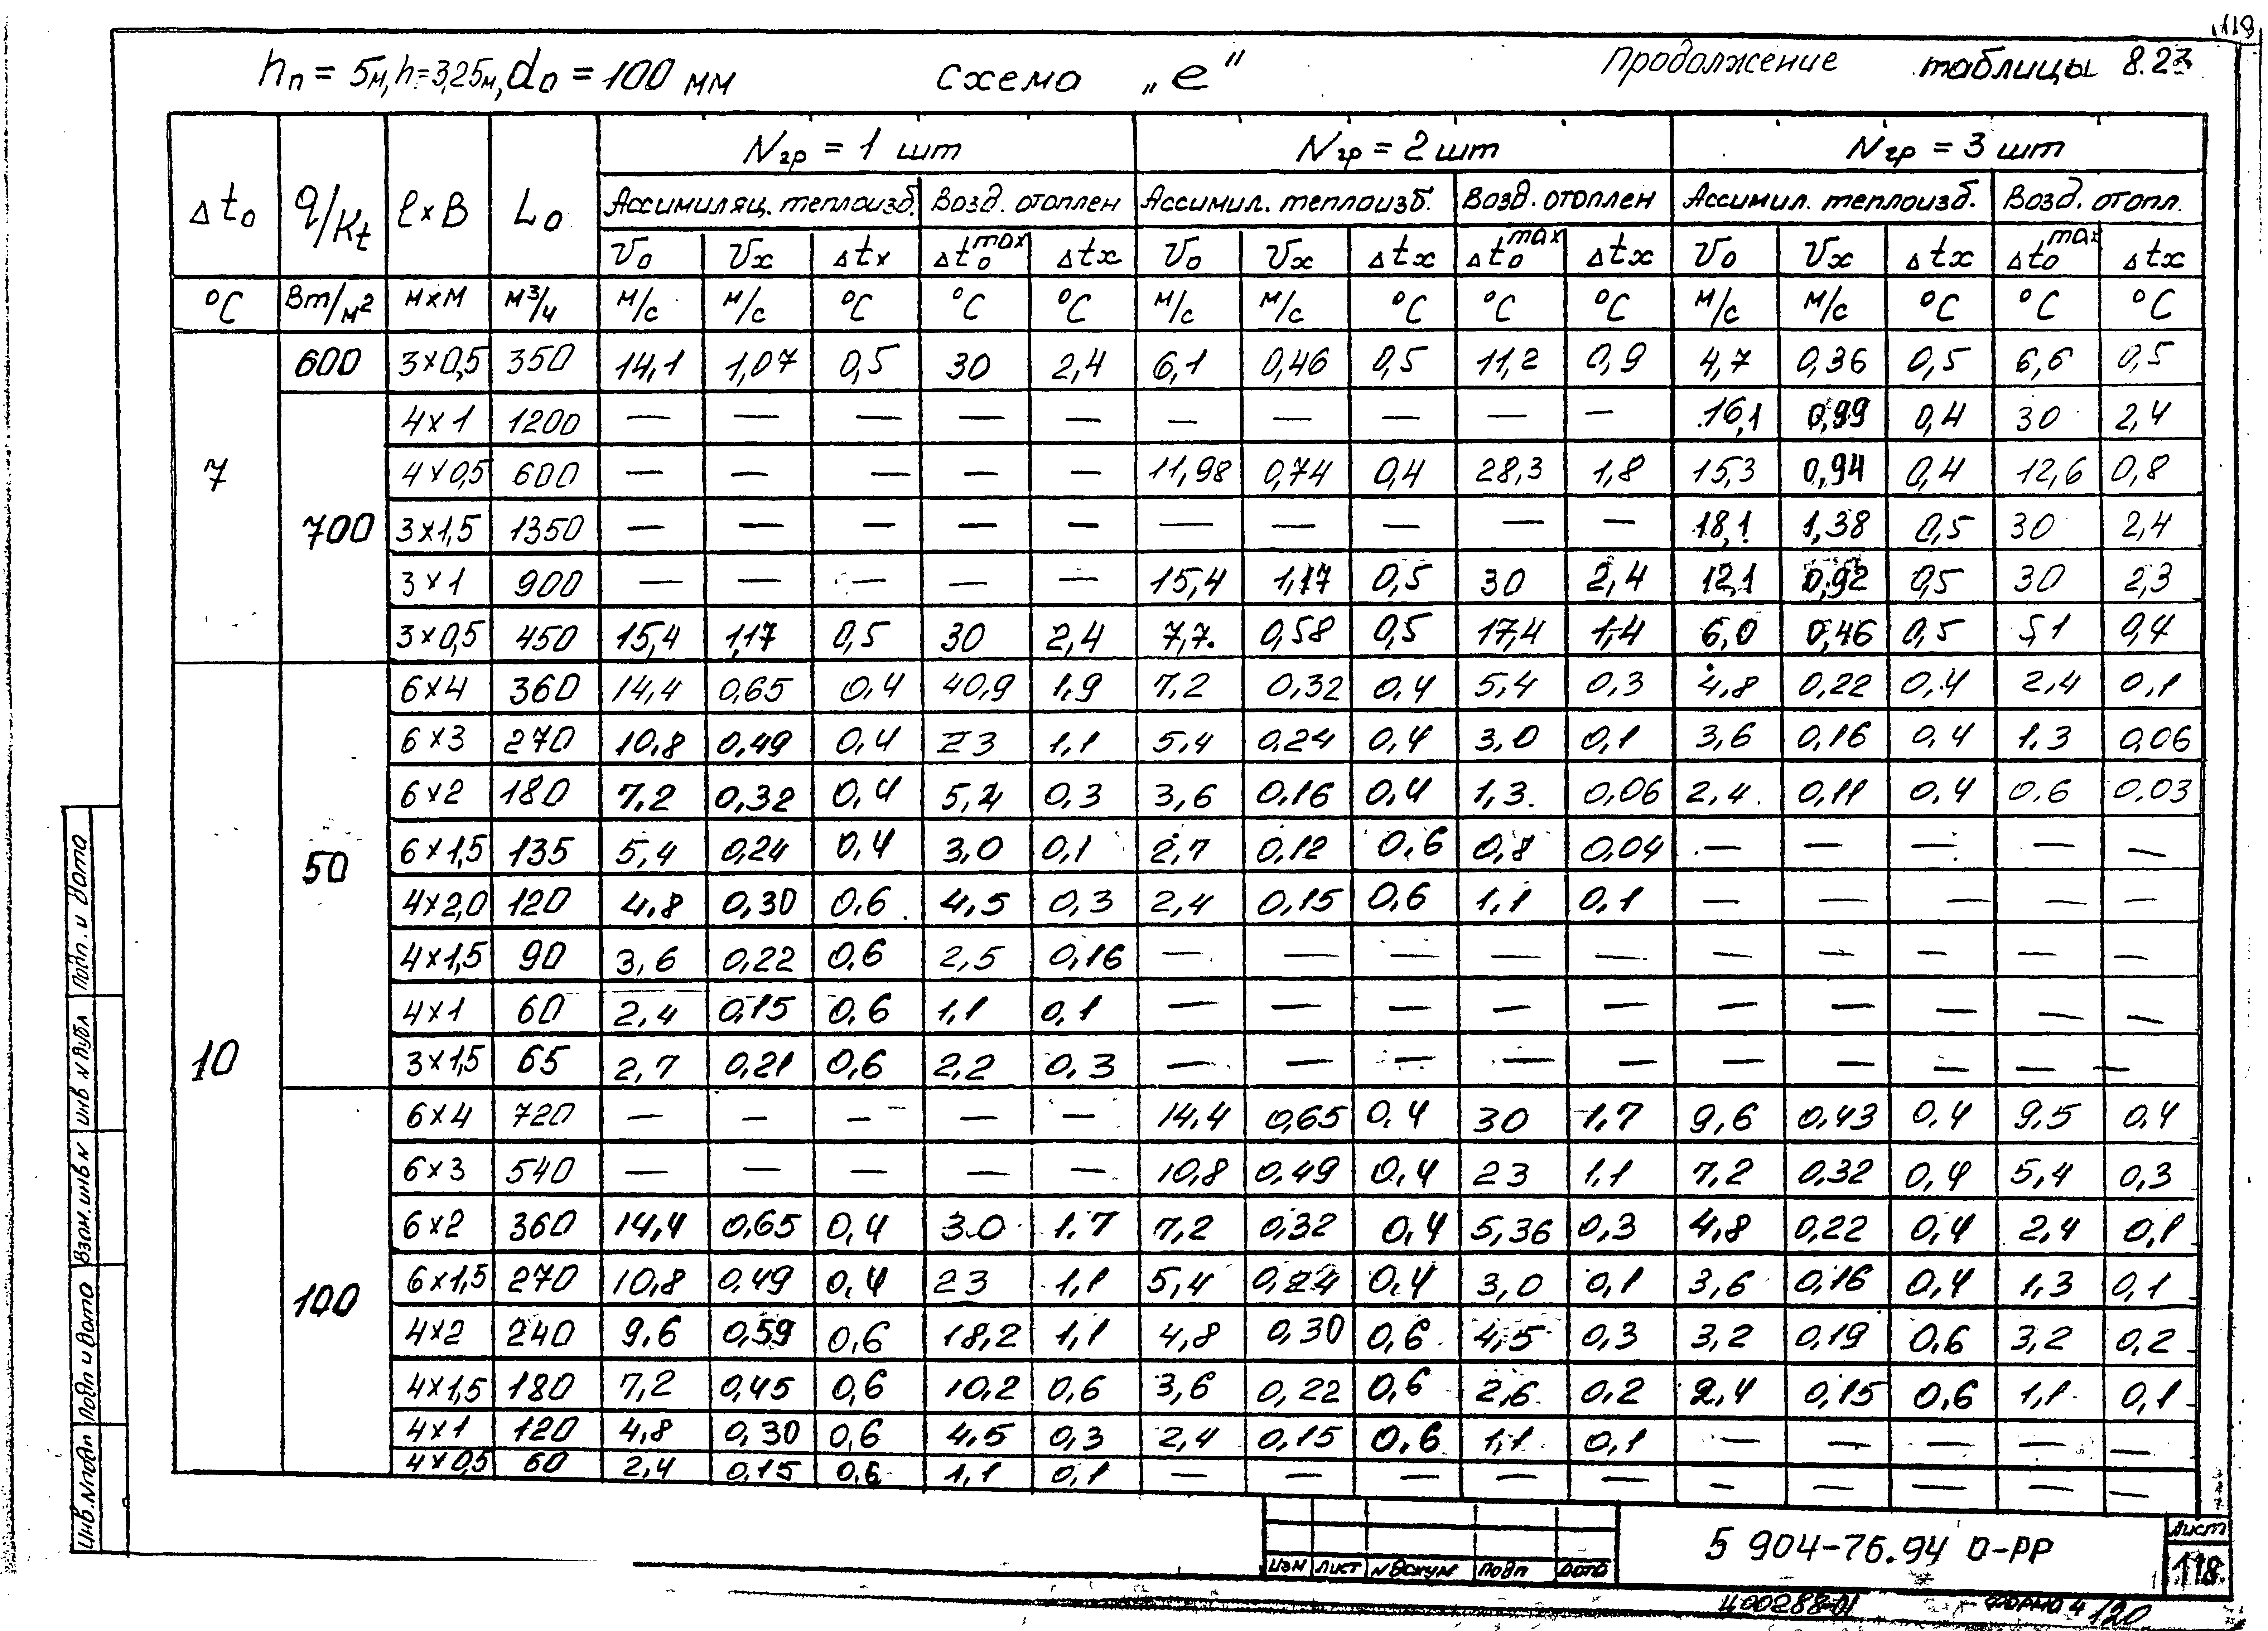 119
hп = 5м, h=3,25м, dо = 100 мм
Схема „е"
Продолжение таблицы 8.23
Δtо q/Kt l×B Lо Nгр = 1 шт Nгр = 2 шт Nгр = 3 шт
Ассимиляц. теплоизб. Возд. отоплен Ассимил. теплоизб. Возд. отоплен Ассимил. теплоизб. Возд. отопл.
Vо Vx Δtx Δtоmax Δtx Vо Vx Δtx Δtоmax Δtx Vо Vx Δtx Δtоmax Δtx
°C Вт/м² м×м м³/ч м/с м/с °C °C °C м/с м/с °C °C °C м/с м/с °C °C °C
7 600 3×0,5 350 14,1 1,07 0,5 30 2,4 6,1 0,46 0,5 11,2 0,9 4,7 0,36 0,5 6,6 0,5
700 4×1 1200 — — — — — — — — — — 16,1 0,99 0,4 30 2,4
4×0,5 600 — — — — — 11,98 0,74 0,4 28,3 1,8 15,3 0,94 0,4 12,6 0,8
3×1,5 1350 — — — — — — — — — — 18,1 1,38 0,5 30 2,4
3×1 900 — — — — — 15,4 1,17 0,5 30 2,4 12,1 0,92 0,5 30 2,3
3×0,5 450 15,4 1,17 0,5 30 2,4 7,7 0,58 0,5 17,4 1,4 6,0 0,46 0,5 5,1 0,4
10 50 6×4 360 14,4 0,65 0,4 40,9 1,9 7,2 0,32 0,4 5,4 0,3 4,8 0,22 0,4 2,4 0,1
6×3 270 10,8 0,49 0,4 23 1,1 5,4 0,24 0,4 3,0 0,1 3,6 0,16 0,4 1,3 0,06
6×2 180 7,2 0,32 0,4 5,4 0,3 3,6 0,16 0,4 1,3 0,06 2,4 0,11 0,4 0,6 0,03
6×1,5 135 5,4 0,24 0,4 3,0 0,1 2,7 0,12 0,6 0,8 0,04 — — — — —
4×2,0 120 4,8 0,30 0,6 4,5 0,3 2,4 0,15 0,6 1,1 0,1 — — — — —
4×1,5 90 3,6 0,22 0,6 2,5 0,16 — — — — — — — — — —
4×1 60 2,4 0,15 0,6 1,1 0,1 — — — — — — — — — —
3×1,5 65 2,7 0,21 0,6 2,2 0,3 — — — — — — — — — —
100 6×4 720 — — — — — 14,4 0,65 0,4 30 1,7 9,6 0,43 0,4 9,5 0,4
6×3 540 — — — — — 10,8 0,49 0,4 23 1,1 7,2 0,32 0,4 5,4 0,3
6×2 360 14,4 0,65 0,4 30 1,7 7,2 0,32 0,4 5,36 0,3 4,8 0,22 0,4 2,4 0,1
6×1,5 270 10,8 0,49 0,4 23 1,1 5,4 0,24 0,4 3,0 0,1 3,6 0,16 0,4 1,3 0,1
4×2 240 9,6 0,59 0,6 18,2 1,1 4,8 0,30 0,6 4,5 0,3 3,2 0,19 0,6 3,2 0,2
4×1,5 180 7,2 0,45 0,6 10,2 0,6 3,6 0,22 0,6 2,6 0,2 2,4 0,15 0,6 1,1 0,1
4×1 120 4,8 0,30 0,6 4,5 0,3 2,4 0,15 0,6 1,1 0,1 — — — — —
4×0,5 60 2,4 0,15 0,6 1,1 0,1 — — — — — — — — — —
Инв. №подл Подп и дата Взам. инв № инв № дубл Подп. и дата
изм лист №докум подп дата
5 904-76.94 0-РР
лист
118
Ц00288-01
формо 4
120